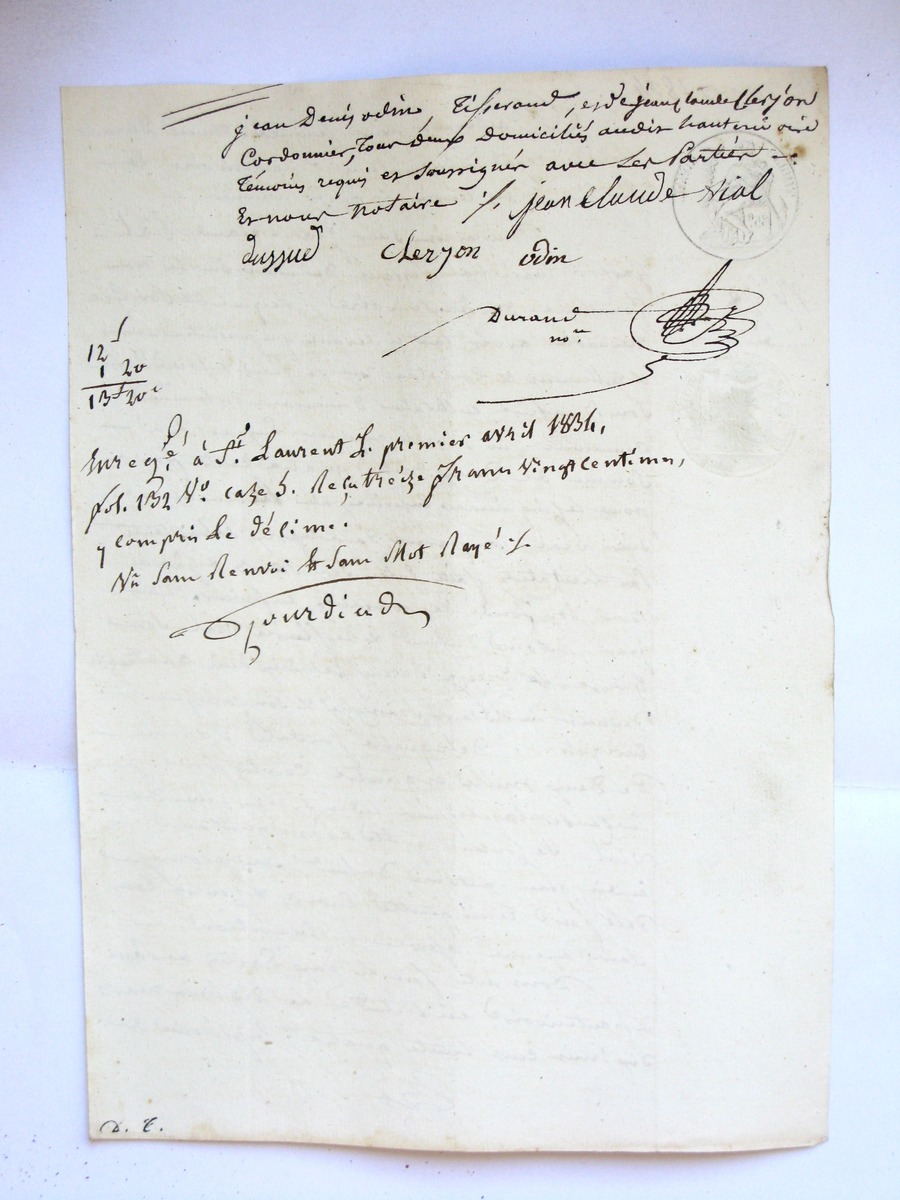 jean Denis odin, Tisserand, et de jean claude Clerjon
Cordonnier, Tous deux domiciliés audit hauterivoire
Témoins requis et soussignés avec les parties
Et nous notaire ./. jean Claude vial
dussud Clerjon odin
Durand
nore
12 f
1 20
13 f 20 c
Enregé. à St. Laurent le premier avril 1834,
fol. 132 Vo. caze 5. Reçu treize francs vingt centimes,
y compris le décime.
Vu sans Renvoi et sans Mot Rayé ./.
D. T.